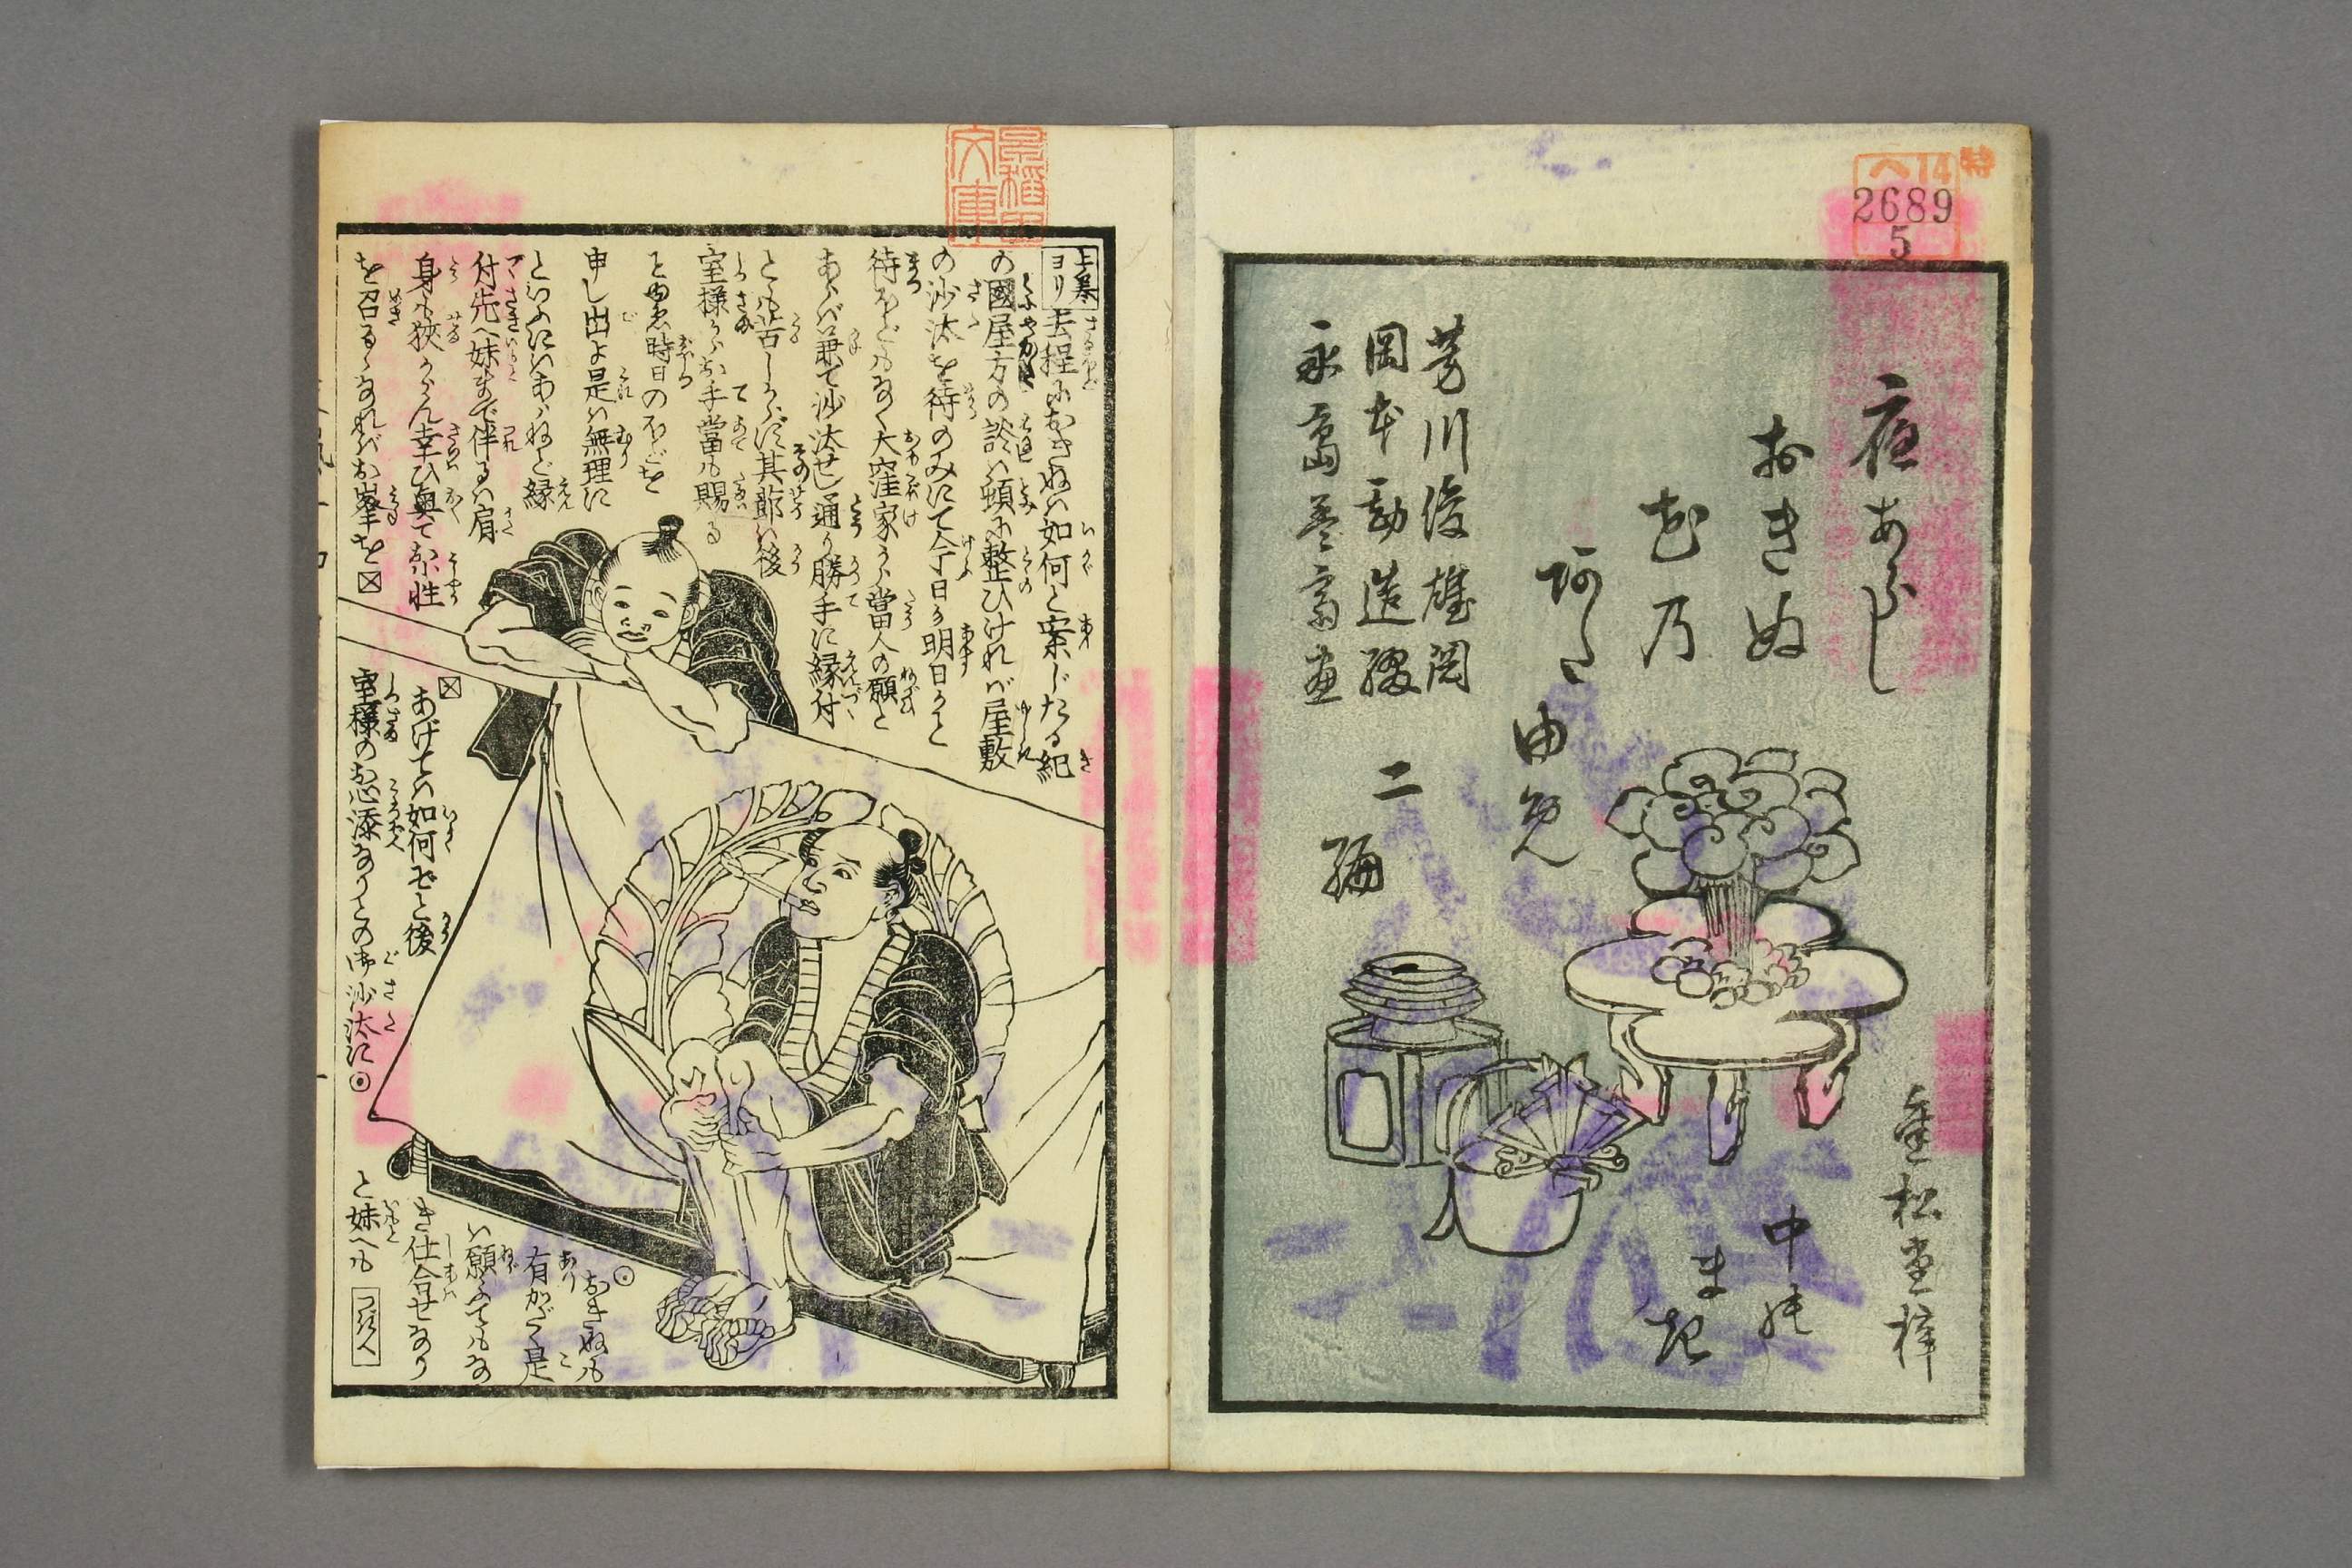 特
ヘ14
2689
5
夜あらし
おきぬ
花乃
阿た
由免
金松堂梓
中の
まき
芳川俊雄閲
岡本勘造綴
永島孟斎画
二編
早稲田文庫
上巻ヨリ
去程におきぬハ如何と案じたる紀
の國屋方の談ハ頓に整ひけれバ屋敷
の沙汰を待のみにて今日か明日かと
待ほどもなく大窪家から當人の願と
あらバ兼て沙汰せし通り勝手に縁付
とも苦しからず其節ハ後
室様からお手當も賜る
と
時日のほどを
申し出よ是ハ無理に
といふにハあらねど縁
付先へ妹まで伴るハ肩
身も狭からん幸ひ奥てお小性
を召るゝなれバお峯を〼
〼あげてハ如何ぞと後
室様のお心添なりとの御沙汰に⦿
⦿おきぬも
有がたく是
ハ願ふてもな
き仕合せなり
と妹へも
つぎへ